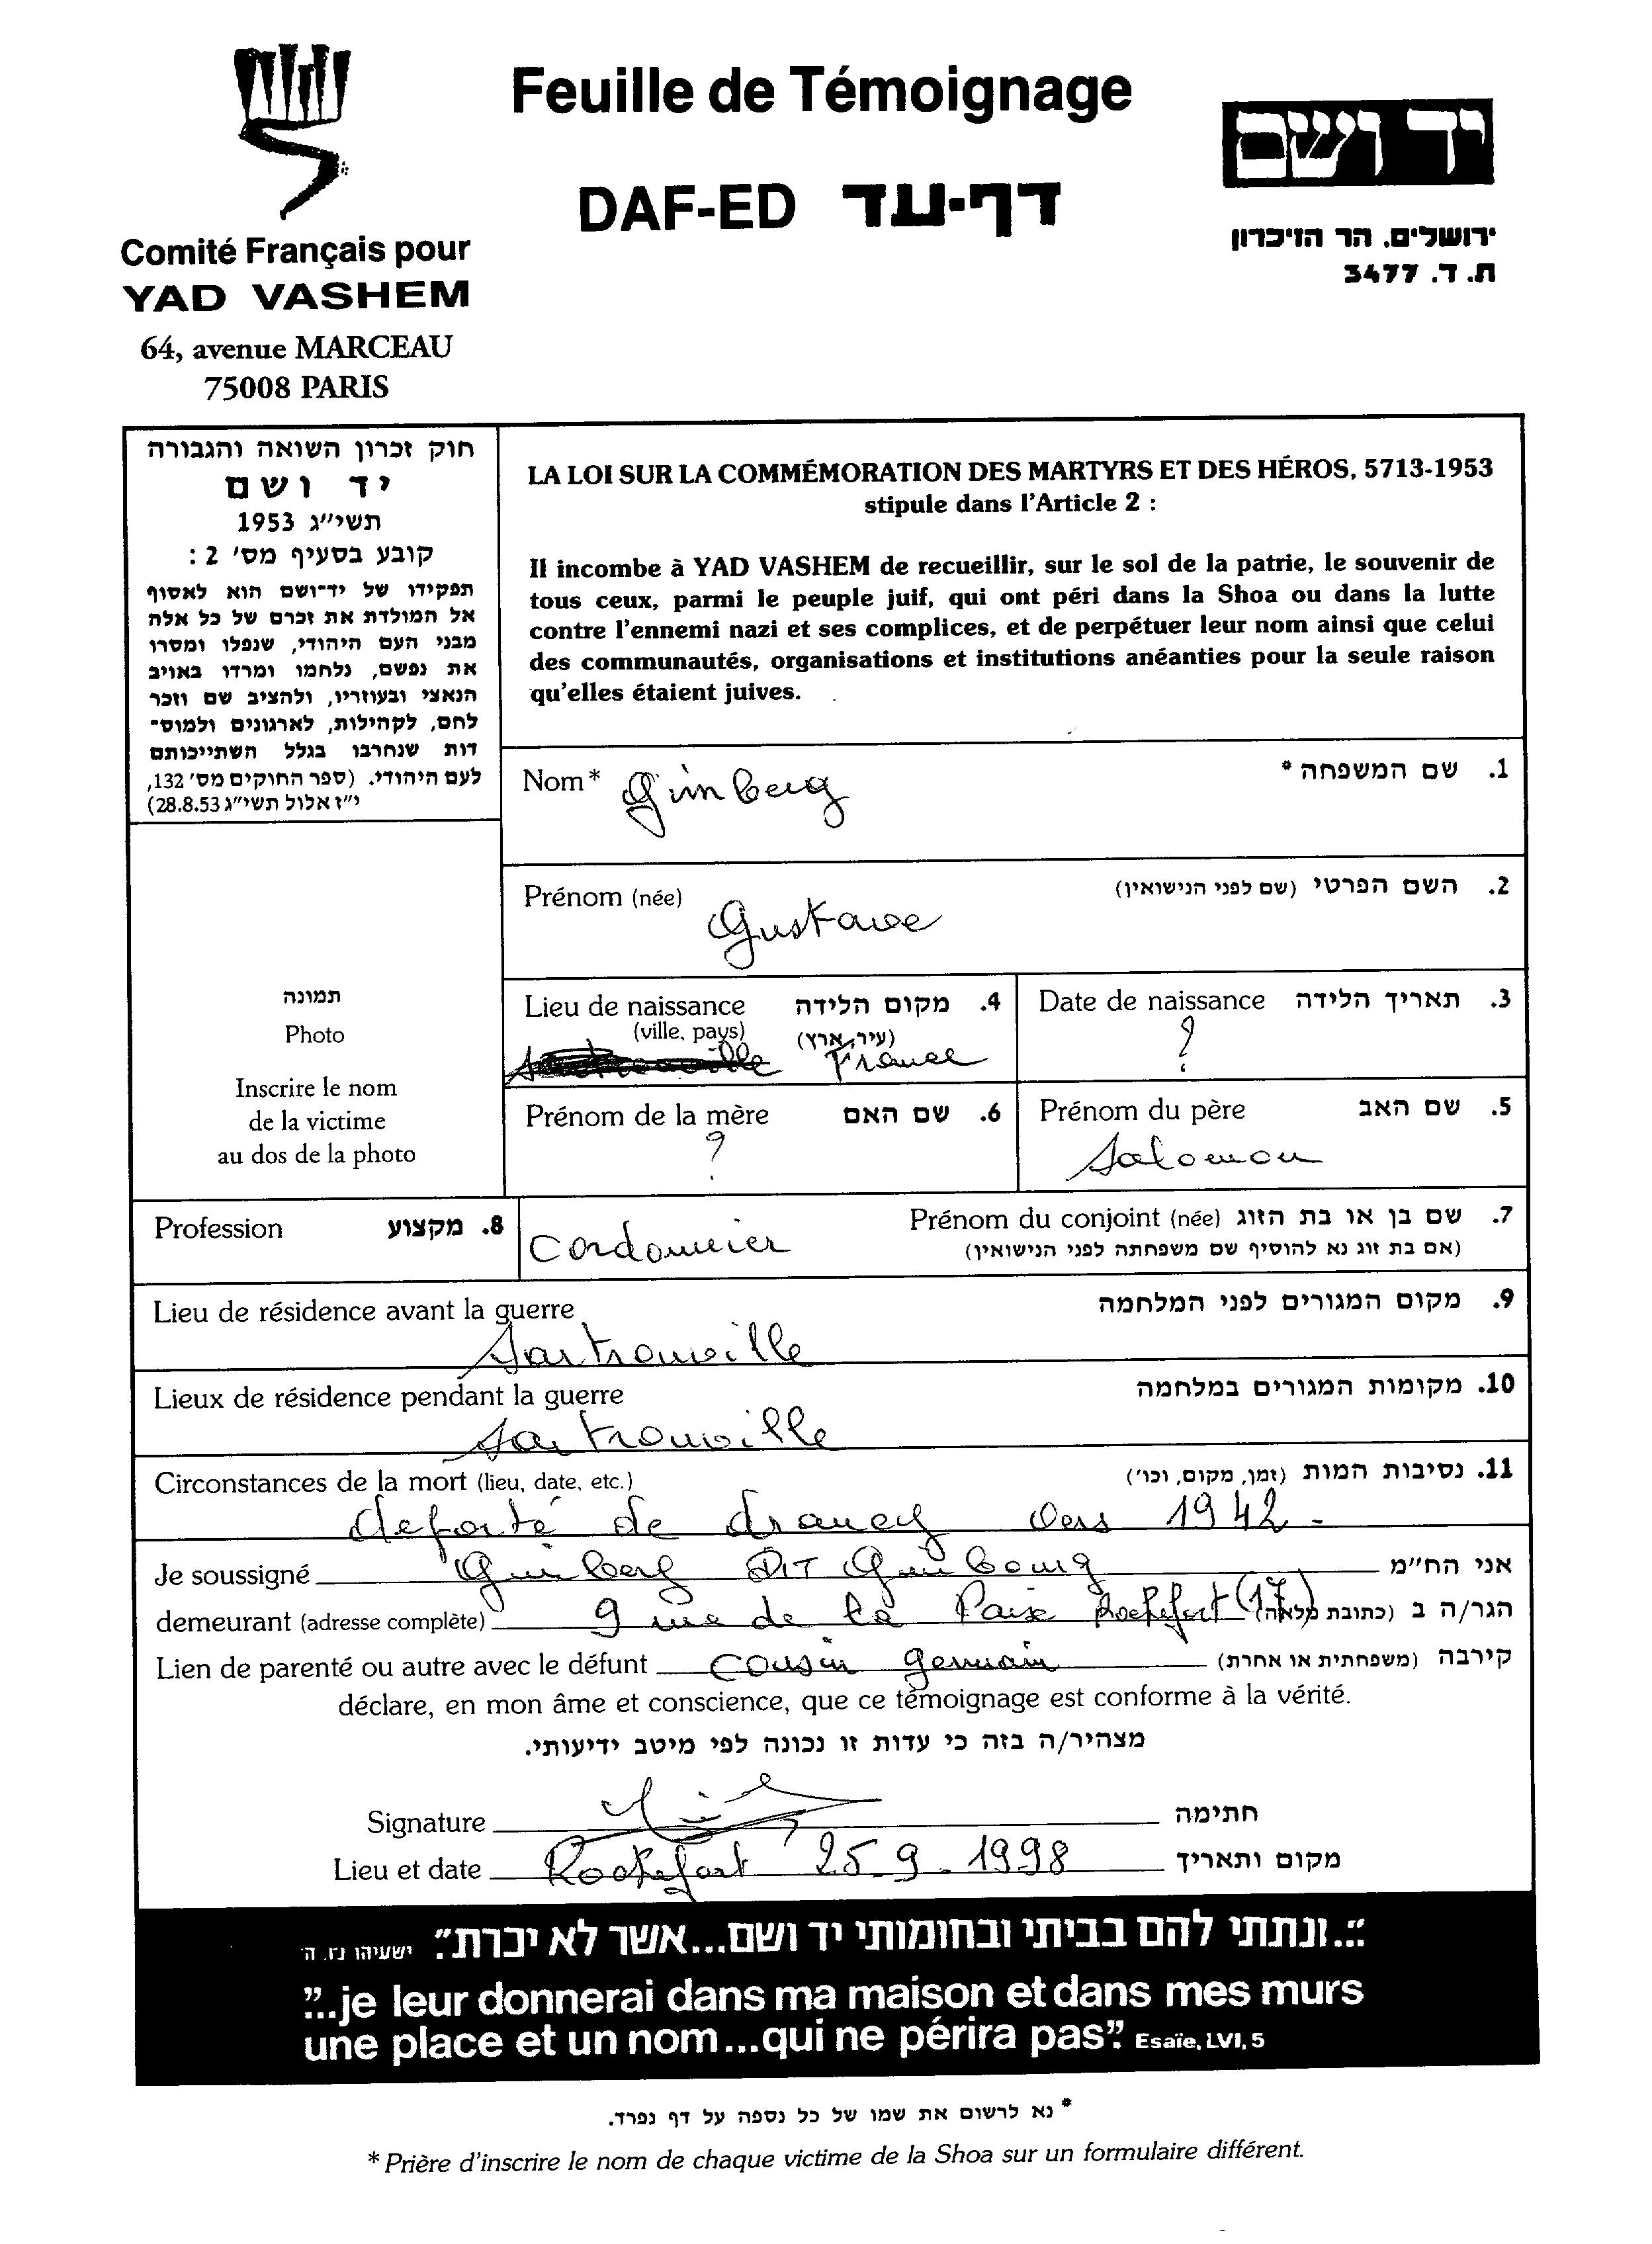 Feuille de Témoignage
DAF-ED דף-עד
Comité Français pour
YAD VASHEM
64, avenue MARCEAU
75008 PARIS
יד ושם
ירושלים. הר הזיכרון
ת. ד. 3477
חוק זכרון השואה והגבורה
יד ושם
תשי״ג 1953
קובע בסעיף מס׳ 2 :
תפקידו של יד־ושם הוא לאסוף
אל המולדת את זכרם של כל אלה
מבני העם היהודי, שנפלו ומסרו
את נפשם, נלחמו ומרדו באויב
הנאצי ובעוזריו, ולהציב שם וזכר
להם, לקהילות, לארגונים ולמוס־
דות שנחרבו בגלל השתייכותם
לעם היהודי. (ספר החוקים מס׳ 132,
י״ז אלול תשי״ג 28.8.53)
LA LOI SUR LA COMMÉMORATION DES MARTYRS ET DES HÉROS, 5713-1953
stipule dans l'Article 2 :
Il incombe à YAD VASHEM de recueillir, sur le sol de la patrie, le souvenir de
tous ceux, parmi le peuple juif, qui ont péri dans la Shoa ou dans la lutte
contre l'ennemi nazi et ses complices, et de perpétuer leur nom ainsi que celui
des communautés, organisations et institutions anéanties pour la seule raison
qu'elles étaient juives.
Nom* Guinberg 1. שם המשפחה *
Prénom (née) Gustave 2. השם הפרטי (שם לפני הנישואין)
תמונה
Photo
Inscrire le nom
de la victime
au dos de la photo
Lieu de naissance 4. מקום הלידה
(ville, pays) (עיר, ארץ)
France
Date de naissance 3. תאריך הלידה
?
Prénom de la mère 6. שם האם
?
Prénom du père 5. שם האב
Salomon
Profession 8. מקצוע
Cordonnier
Prénom du conjoint (née) 7. שם בן או בת הזוג
(אם בת זוג נא להוסיף שם משפחתה לפני הנישואין)
Lieu de résidence avant la guerre 9. מקום המגורים לפני המלחמה
Sartrouville
Lieux de résidence pendant la guerre 10. מקומות המגורים במלחמה
Sartrouville
Circonstances de la mort (lieu, date, etc.) 11. נסיבות המות (זמן, מקום, וכו׳)
deporté de drancy vers 1942 -
Je soussigné Guinberg DIT Guinbourg אני הח״מ
demeurant (adresse complète) 9 rue de la Paix Rochefort (17) הגר/ה ב (כתובת מלאה)
Lien de parenté ou autre avec le défunt cousin germain קירבה (משפחתית או אחרת)
déclare, en mon âme et conscience, que ce témoignage est conforme à la vérité.
מצהיר/ה בזה כי עדות זו נכונה לפי מיטב ידיעותי.
Signature חתימה
Lieu et date Rochefort 25-9-1998 מקום ותאריך
״...ונתתי להם בביתי ובחומותי יד ושם...אשר לא יכרת״. ישעיהו נו. ה׳
”...je leur donnerai dans ma maison et dans mes murs
une place et un nom...qui ne périra pas”. Esaïe, LVI, 5
* נא לרשום את שמו של כל נספה על דף נפרד.
* Prière d'inscrire le nom de chaque victime de la Shoa sur un formulaire différent.